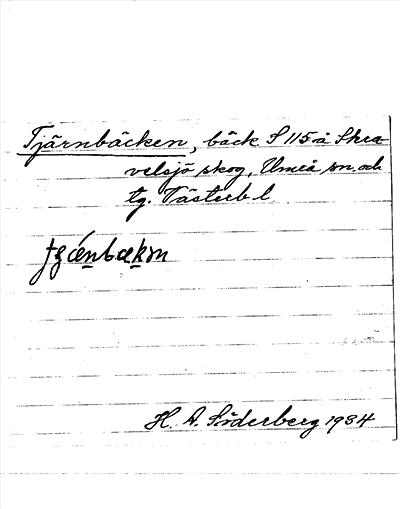 Tjärnbäcken, bäck S 115 å Skra-
velsjö skog, Umeå sn och
tg. Västerb l
H. A. Söderberg 1934